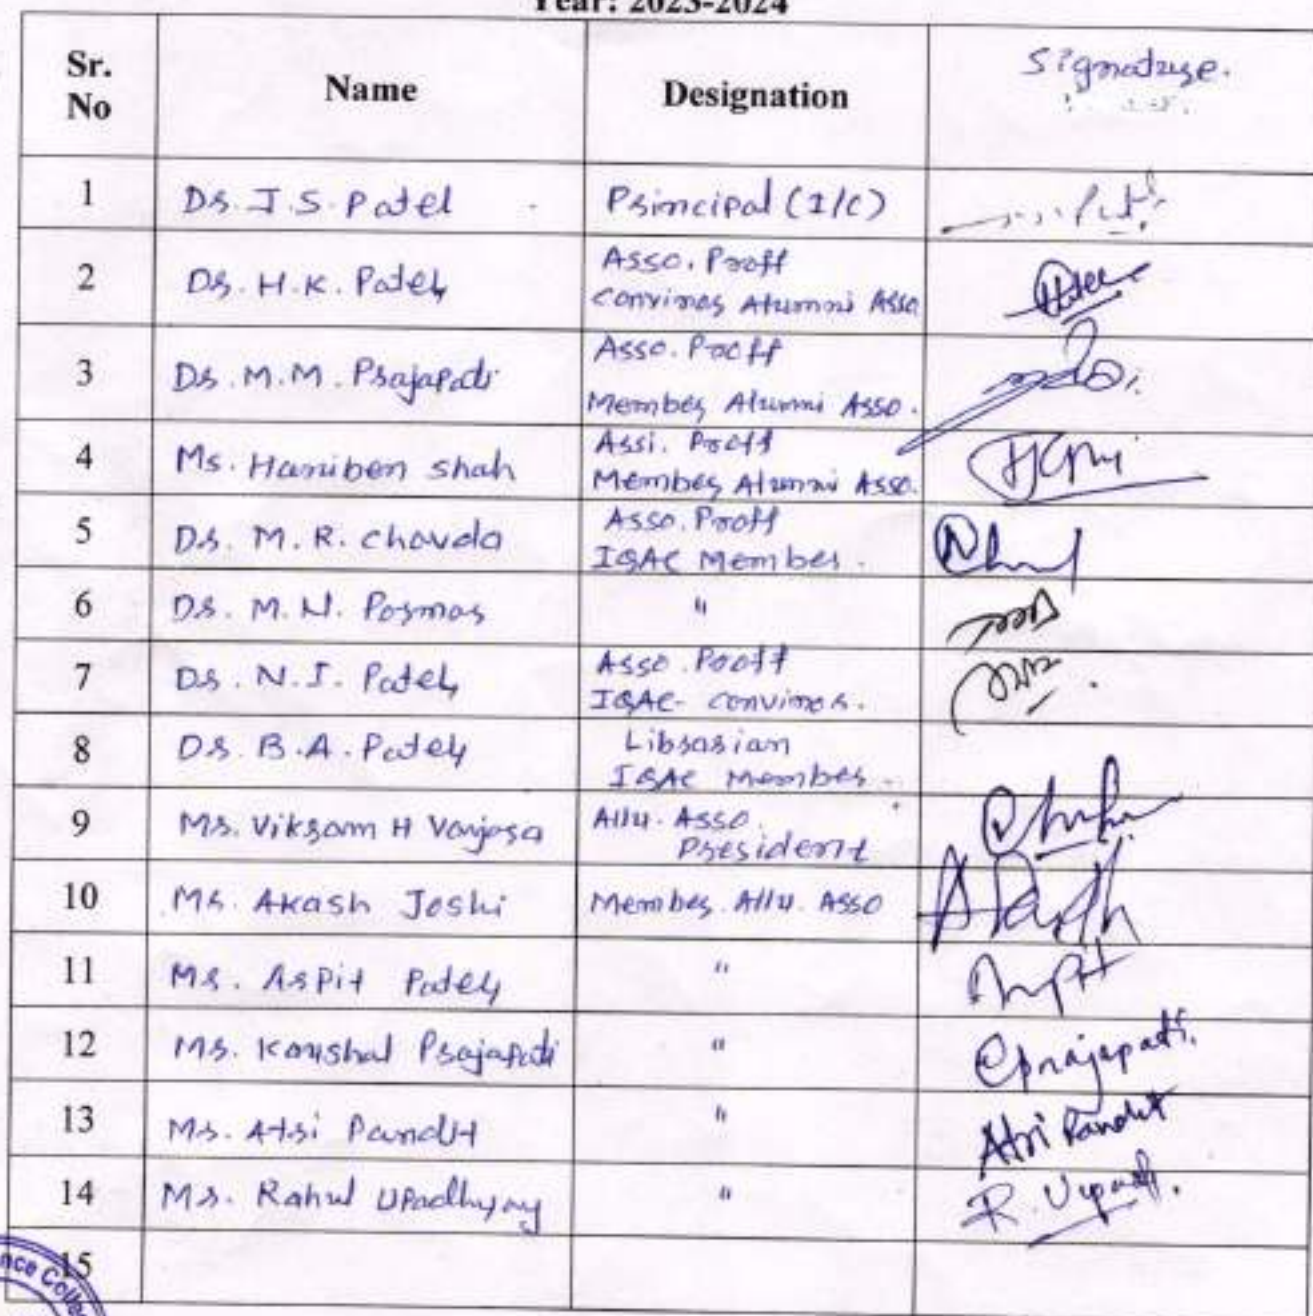 Year: 2023-2024
Sr. No Name Designation Signature.
1 Dr. J. S. Patel Principal (I/C)
2 Dr. H. K. Patel Asso. Proff
Convinor Alumni Asso
3 Dr. M. M. Prajapati Asso. Proff
Member Alumni Asso.
4 Ms. Haniben shah Assi. Proff
Member Alumni Asso.
5 Dr. M. R. chavda Asso. Proff
IQAC Member.
6 Dr. M. N. Parmar "
7 Dr. N. I. Patel Asso. Proff
IQAC- convinor.
8 Dr. B. A. Patel Librarian
IQAC Member
9 Mr. Vikram H Vanjara Allu. Asso.
President
10 Mr. Akash Joshi Member. Allu. Asso
11 Mr. Arpit Patel "
12 Mr. Kaushal Prajapati " Prajapati.
13 Mr. Atri Pandit " Atri Pandit
14 Mr. Rahul Upadhyay "
15